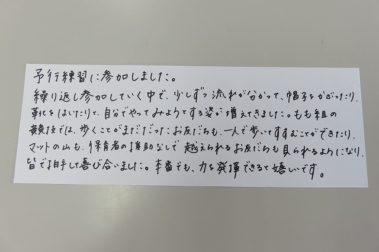 予行練習に参加しました。
繰り返し参加していく中で、少しずつ流れが分かって、帽子をかぶったり、
靴をはいたりと、自分でやってみようとする姿が増えてきました。もも組の
競技では、歩くことがまだだったお友だちも、一人で歩いてすすむことができたり、
マットの山も、保育者の援助なしで越えられるお友だちも見られるようになり、
皆で拍手して喜び合いました。本番でも、力を発揮できると嬉しいです。